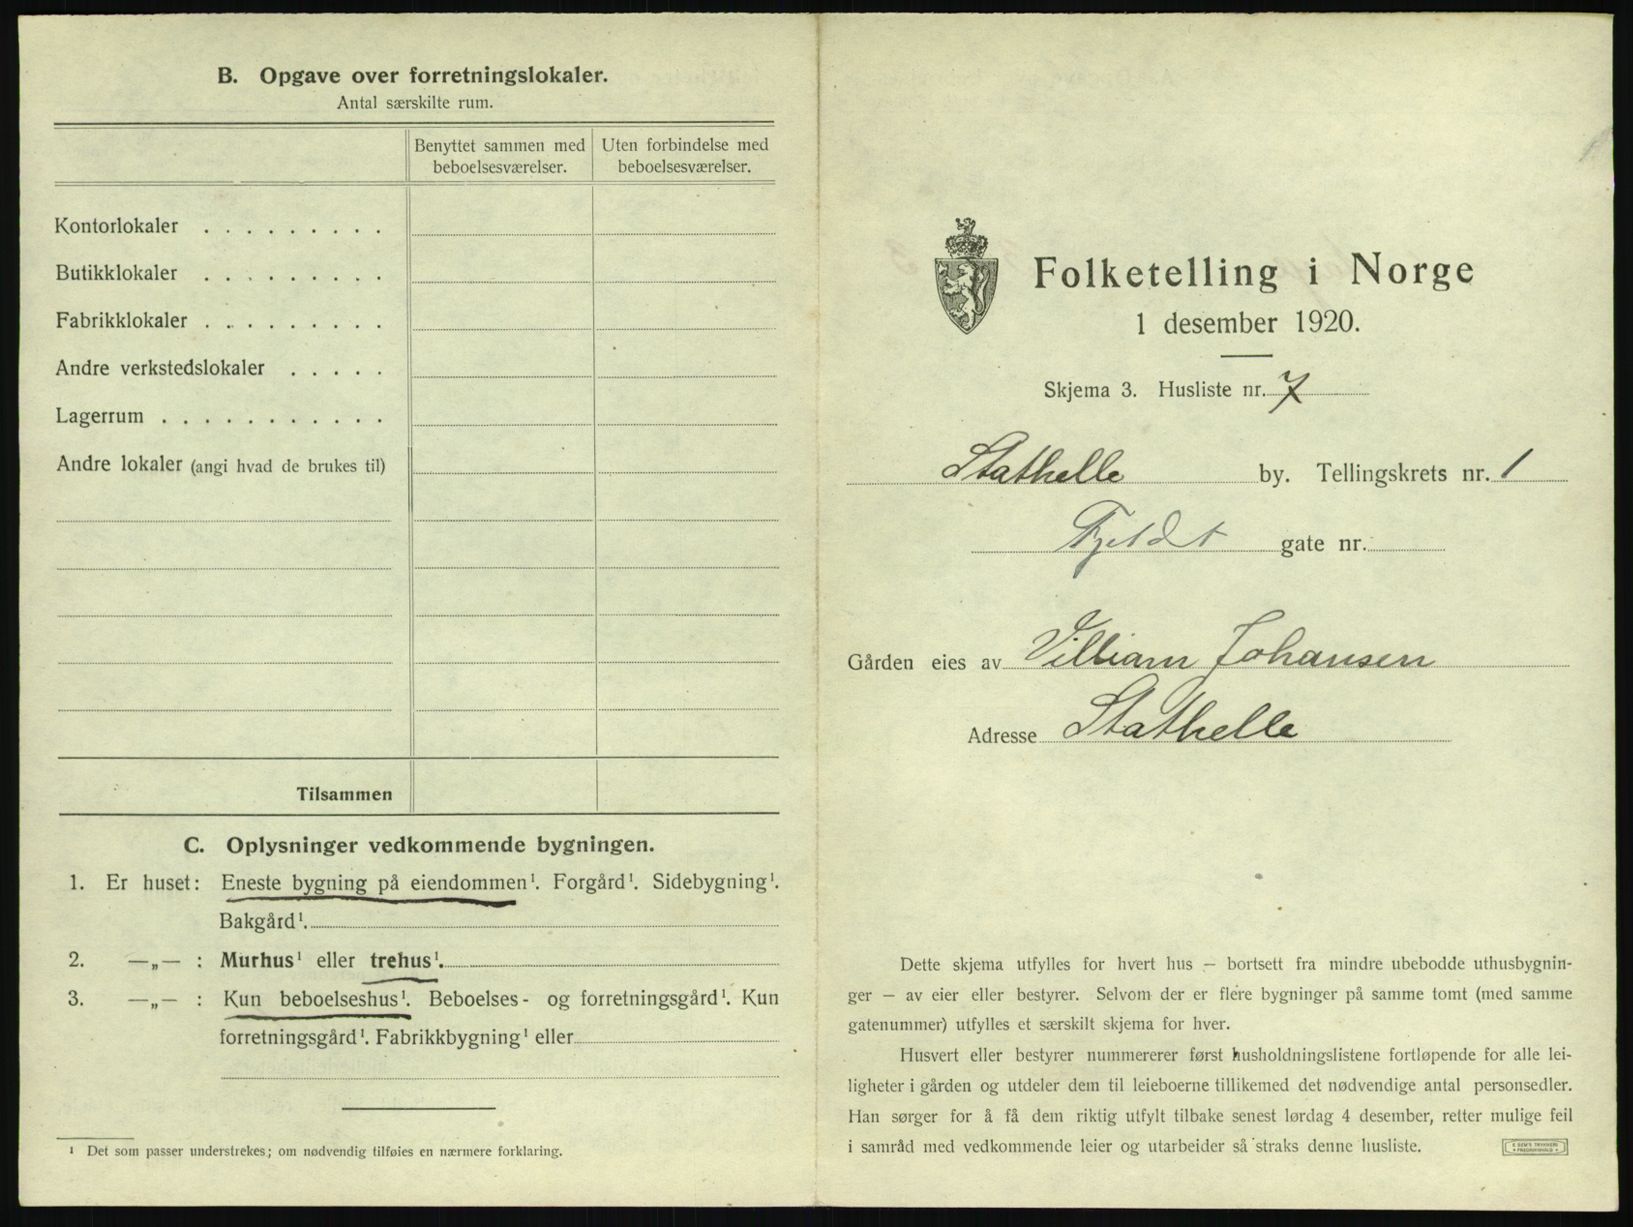 B. Opgave over forretningslokaler.
Antal særskilte rum.
Benyttet sammen med beboelsesværelser.
Uten forbindelse med beboelsesværelser.
Kontorlokaler . . . . . . . . .
Butikklokaler . . . . . . . . .
Fabrikklokaler . . . . . . . . .
Andre verkstedslokaler . . . . .
Lagerrum . . . . . . . . . . .
Andre lokaler (angi hvad de brukes til)
Tilsammen
C. Oplysninger vedkommende bygningen.
1. Er huset: Eneste bygning på eiendommen¹. Forgård¹. Sidebygning¹.
Bakgård¹.
2. —„— : Murhus¹ eller trehus¹.
3. —„— : Kun beboelseshus¹. Beboelses- og forretningsgård¹. Kun
forretningsgård¹. Fabrikkbygning¹ eller
¹ Det som passer understrekes; om nødvendig tilføies en nærmere forklaring.
Folketelling i Norge
1 desember 1920.
Skjema 3. Husliste nr. 7
Stathelle by. Tellingskrets nr. 1
Fjeldt gate nr.
Gården eies av Villiam Johansen
Adresse Stathelle
Dette skjema utfylles for hvert hus — bortsett fra mindre ubebodde uthusbygnin-
ger — av eier eller bestyrer. Selvom der er flere bygninger på samme tomt (med samme
gatenummer) utfylles et særskilt skjema for hver.
Husvert eller bestyrer nummererer først husholdningslistene fortløpende for alle lei-
ligheter i gården og utdeler dem til leieboerne tillikemed det nødvendige antal personsedler.
Han sørger for å få dem riktig utfylt tilbake senest lørdag 4 desember, retter mulige feil
i samråd med vedkommende leier og utarbeider så straks denne husliste.